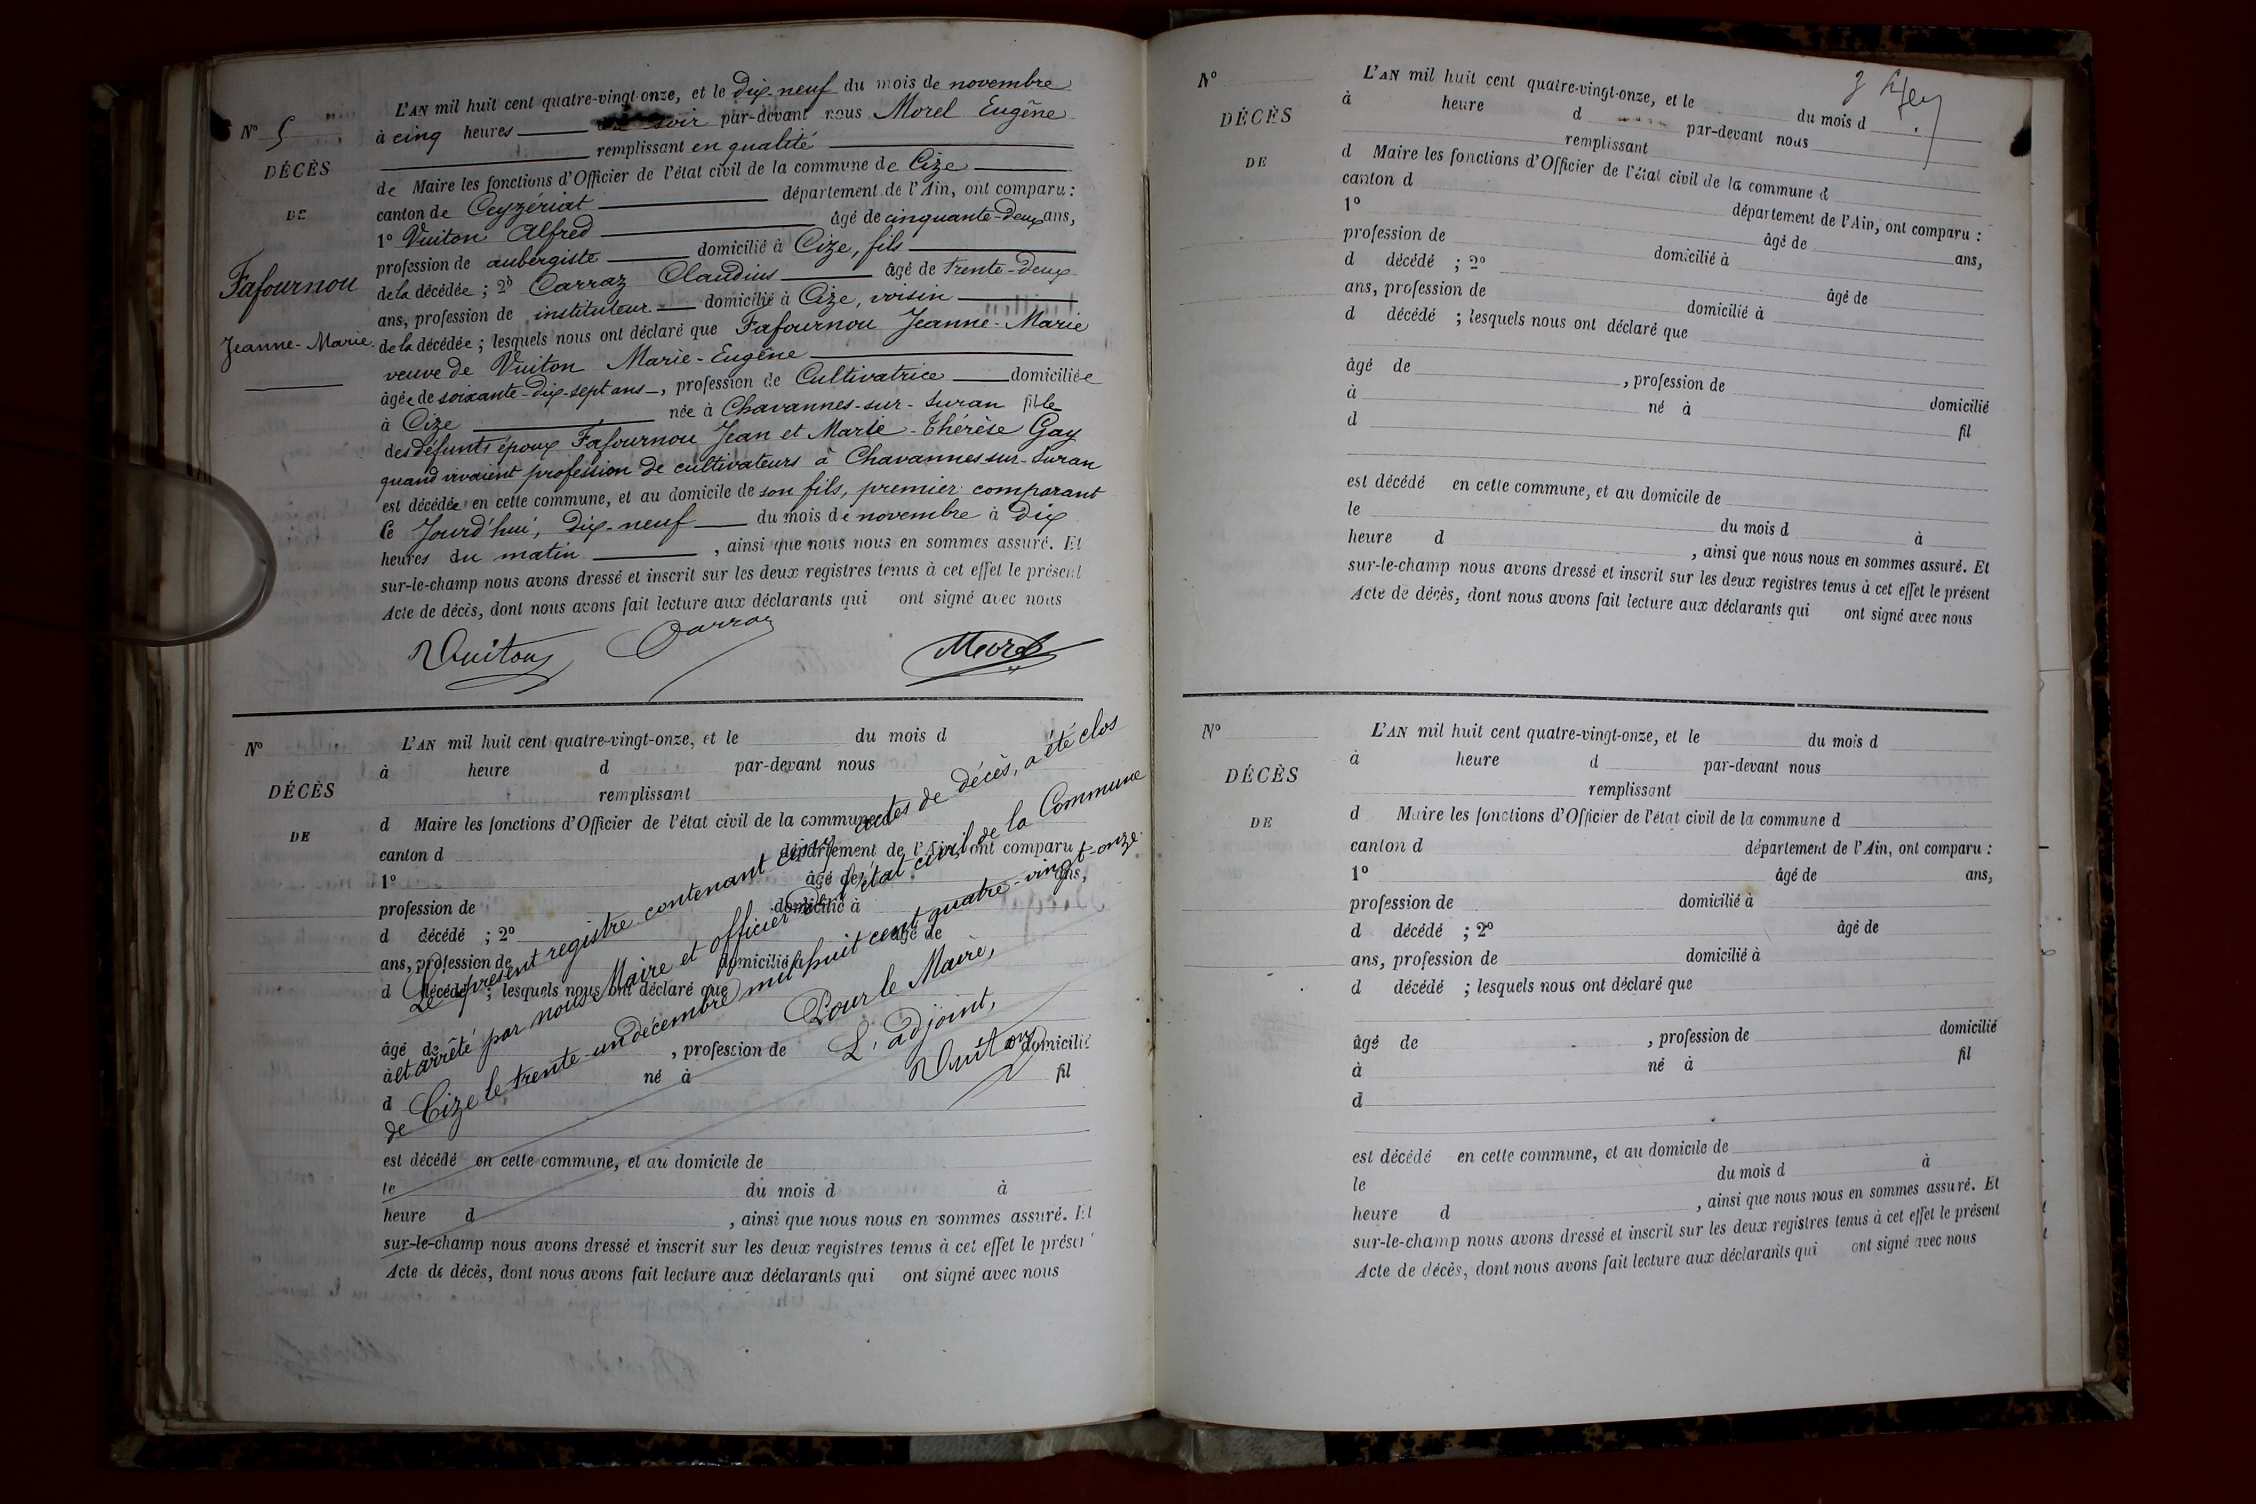 N° 5
DÉCÈS
DE
Fafournou
Jeanne-Marie.
L'AN mil huit cent quatre-vingt-onze, et le dix-neuf du mois de novembre
à cinq heures du soir par-devant nous Morel Eugène
remplissant en qualité
de Maire les fonctions d'Officier de l'état civil de la commune de Cize
canton de Ceyzériat département de l'Ain, ont comparu :
1° Vuiton Alfred âgé de cinquante-deux ans,
profession de aubergiste domicilié à Cize, fils
de la décédée ; 2° Carraz Claudius âgé de trente-deux
ans, profession de instituteur domicilié à Cize, voisin
de la décédée ; lesquels nous ont déclaré que Fafournou Jeanne-Marie
veuve de Vuiton Marie-Eugène
âgée de soixante-dix-sept ans, profession de Cultivatrice domiciliée
à Cize née à Chavannes-sur-Suran fille
des défunts époux Fafournou Jean et Marie-Thérèse Gay
quand vivaient profession de cultivateurs à Chavannes-sur-Suran
est décédée en cette commune, et au domicile de son fils, premier comparant
le Jourd'hui, dix-neuf du mois de novembre à dix
heures du matin , ainsi que nous nous en sommes assuré. Et
sur-le-champ nous avons dressé et inscrit sur les deux registres tenus à cet effet le présent
Acte de décès, dont nous avons fait lecture aux déclarants qui ont signé avec nous
Vuiton Carraz Morel
N°
DÉCÈS
DE
L'AN mil huit cent quatre-vingt-onze, et le du mois d
à heure d par-devant nous
remplissant
d Maire les fonctions d'Officier de l'état civil de la commune d
canton d département de l'Ain, ont comparu
1° âgé de ans,
profession de domicilié à
d décédé ; 2° âgé de
ans, profession de domicilié à
d décédé ; lesquels nous ont déclaré que
âgé de , profession de domicilié
à né à fil
d
est décédé en cette commune, et au domicile de
le du mois d à
heure d , ainsi que nous nous en sommes assuré. Et
sur-le-champ nous avons dressé et inscrit sur les deux registres tenus à cet effet le présent
Acte de décès, dont nous avons fait lecture aux déclarants qui ont signé avec nous
Le présent registre contenant cinq actes de décès, a été clos
et arrêté par nous Maire et officier de l'état civil de la Commune
de Cize le trente-un décembre mil huit cent quatre-vingt-onze.
Pour le Maire,
L'adjoint,
Vuiton
N°
DÉCÈS
DE
L'AN mil huit cent quatre-vingt-onze, et le du mois d
à heure d par-devant nous
remplissant
d Maire les fonctions d'Officier de l'état civil de la commune d
canton d département de l'Ain, ont comparu :
1° âgé de ans,
profession de domicilié à
d décédé ; 2° âgé de
ans, profession de domicilié à
d décédé ; lesquels nous ont déclaré que
âgé de , profession de domicilié
à né à fil
d
est décédé en cette commune, et au domicile de
le du mois d à
heure d , ainsi que nous nous en sommes assuré. Et
sur-le-champ nous avons dressé et inscrit sur les deux registres tenus à cet effet le présent
Acte de décès, dont nous avons fait lecture aux déclarants qui ont signé avec nous
N°
DÉCÈS
DE
L'AN mil huit cent quatre-vingt-onze, et le du mois d
à heure d par-devant nous
remplissant
d Maire les fonctions d'Officier de l'état civil de la commune d
canton d département de l'Ain, ont comparu :
1° âgé de ans,
profession de domicilié à
d décédé ; 2° âgé de
ans, profession de domicilié à
d décédé ; lesquels nous ont déclaré que
âgé de , profession de domicilié
à né à fil
d
est décédé en cette commune, et au domicile de
le du mois d à
heure d , ainsi que nous nous en sommes assuré. Et
sur-le-champ nous avons dressé et inscrit sur les deux registres tenus à cet effet le présent
Acte de décès, dont nous avons fait lecture aux déclarants qui ont signé avec nous